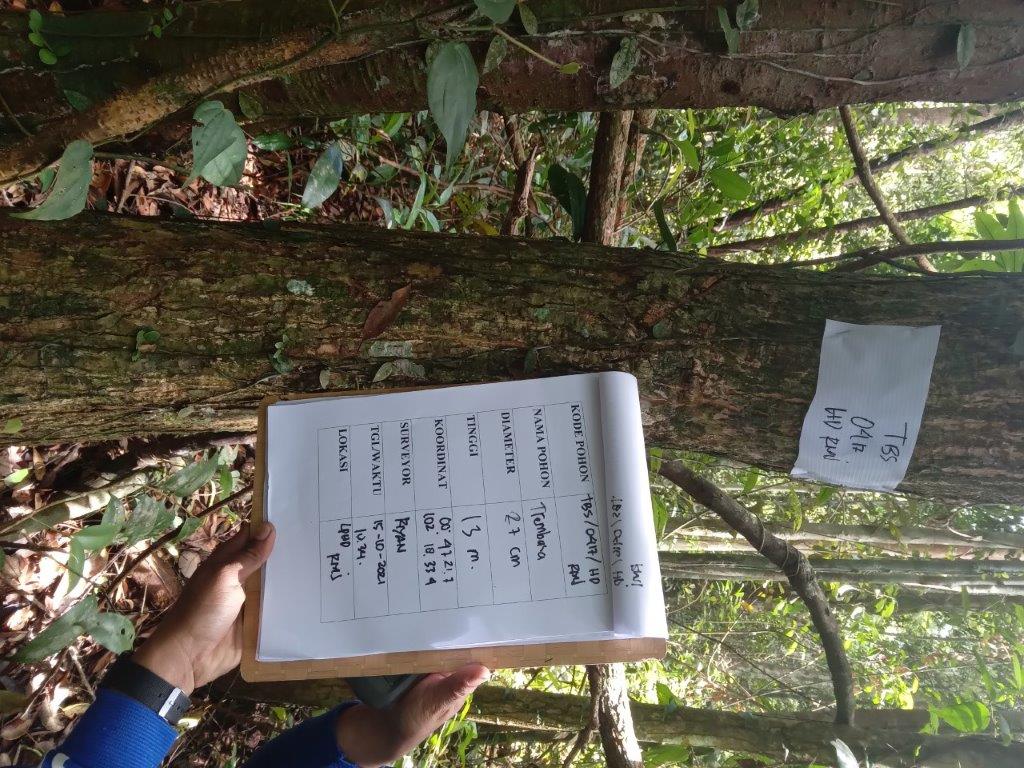 TBS
0417.
HD RMJ
KODE POHON TBS/0417/HD
RMJ
NAMA POHON Trembasa
DIAMETER 27 cm
TINGGI 13 m.
KOORDINAT 00° 47 21.7
102° 18.33 4
SURVEYOR RIYAN
TGL/WAKTU 15-10-2021
10.34.
LOKASI LPHD
RMJ